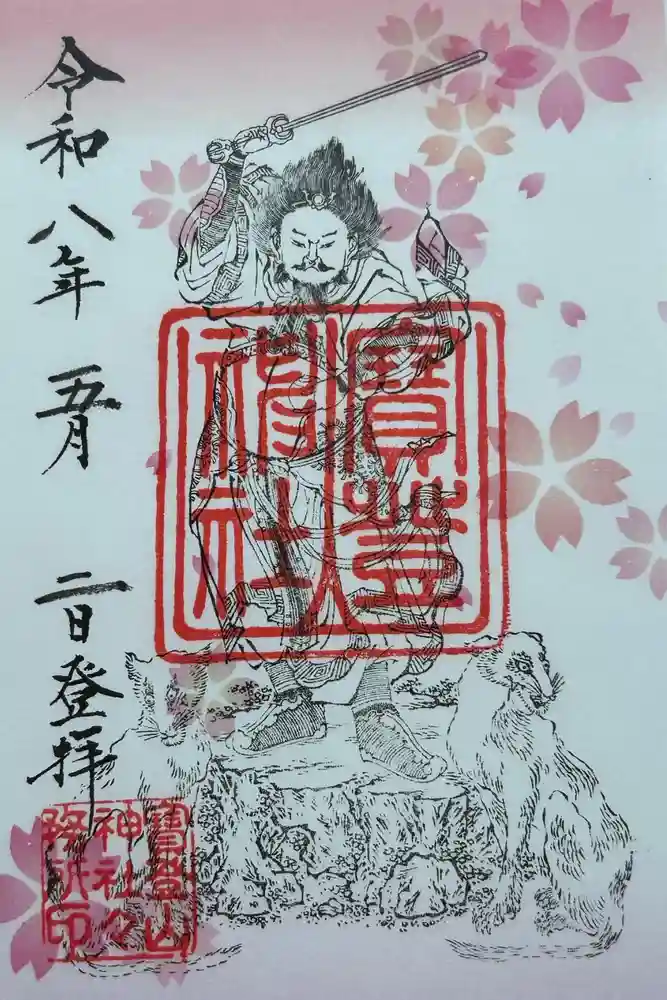 令和八年 五月 二日登拝
寳登
神社
寳登山
神社々
務所印